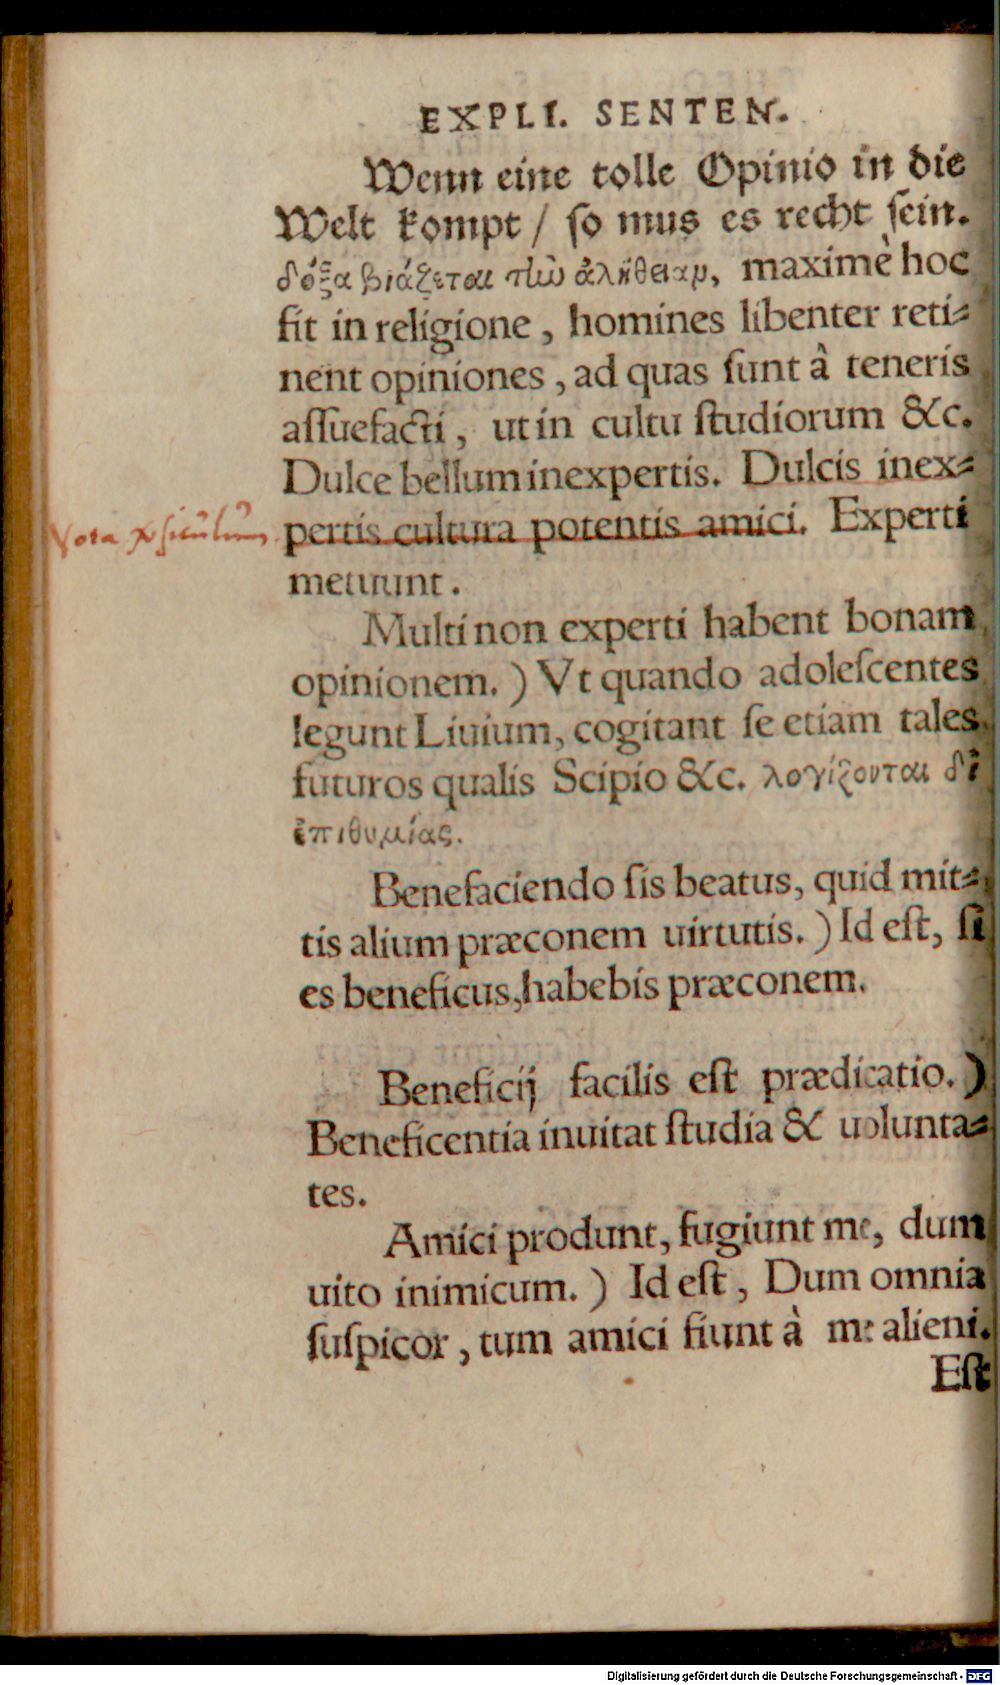 EXPLI. SENTEN.
Wenn eine tolle Opinio in die
Welt kompt / so mus es recht sein.
δόξα βιάζεται τὴν ἀλήθειαν, maximè hoc
fit in religione, homines libenter reti⸗
nent opiniones, ad quas ſunt à teneris
aſſuefacti, ut in cultu ſtudiorum &c.
Dulce bellum inexpertis. Dulcis inex⸗
Nota pertis cultura potentis amici. Experti
metuunt.
Multi non experti habent bonam
opinionem.) Vt quando adoleſcentes
legunt Liuium, cogitant ſe etiam tales
futuros qualis Scipio &c. λογίζονται δἰ
ἐπιθυμίας.
Benefaciendo ſis beatus, quid mit⸗
tis alium præconem uirtutis.) Id eſt, ſi
es beneficus, habebis præconem.
Beneficij facilis eſt prædicatio.)
Beneficentia inuitat ſtudia & uolunta⸗
tes.
Amici produnt, fugiunt me, dum
uito inimicum.) Id eſt, Dum omnia
ſuſpicor, tum amici fiunt à me alieni.
Eſt
Digitalisierung gefördert durch die Deutsche Forschungsgemeinschaft - DFG